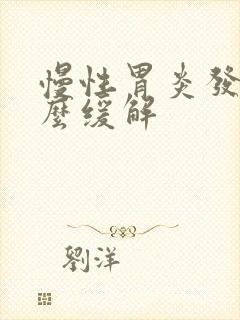 慢性胃炎發
麼缓解
劉洋